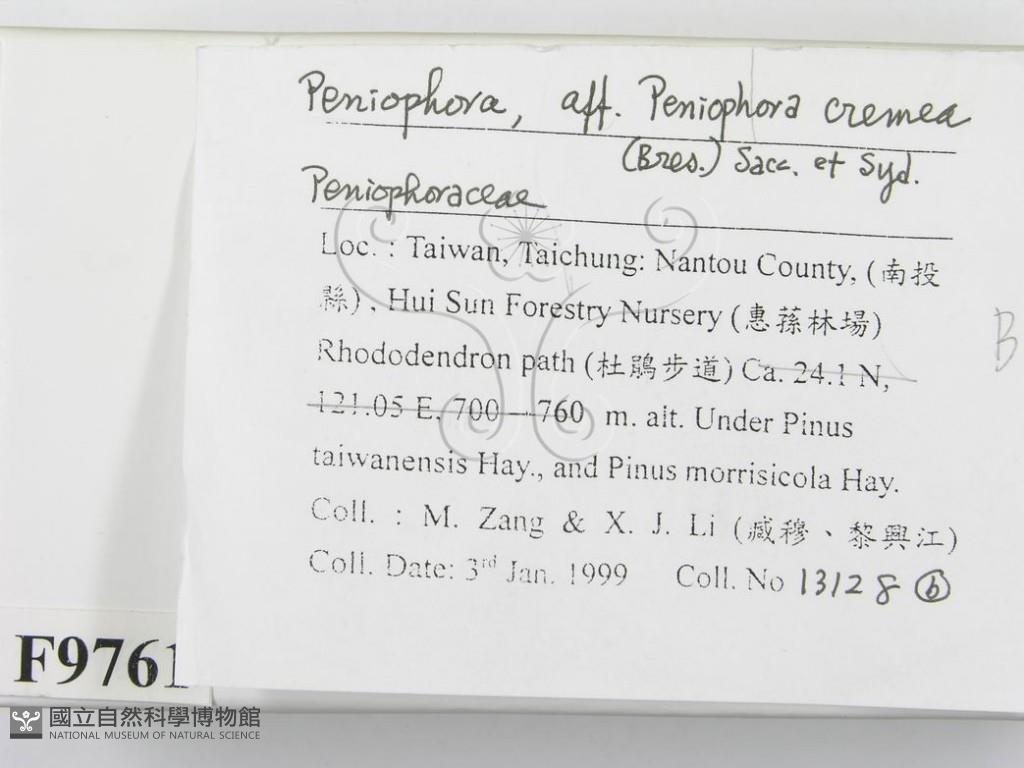 Peniophora, aff. Peniophora cremea
(Bres.) Sacc. et Syd.
Peniophoraceae
Loc. : Taiwan, Taichung: Nantou County, (南投
縣) , Hui Sun Forestry Nursery (惠蓀林場)
Rhododendron path (杜鵑步道) Ca. 24.1 N,
121.05 E, 700 – 760 m. alt. Under Pinus
taiwanensis Hay., and Pinus morrisicola Hay.
Coll. : M. Zang & X. J. Li (臧穆、黎興江)
Coll. Date: 3rd Jan. 1999 Coll. No 13128 ⓑ
B
F9761
國立自然科學博物館
NATIONAL MUSEUM OF NATURAL SCIENCE